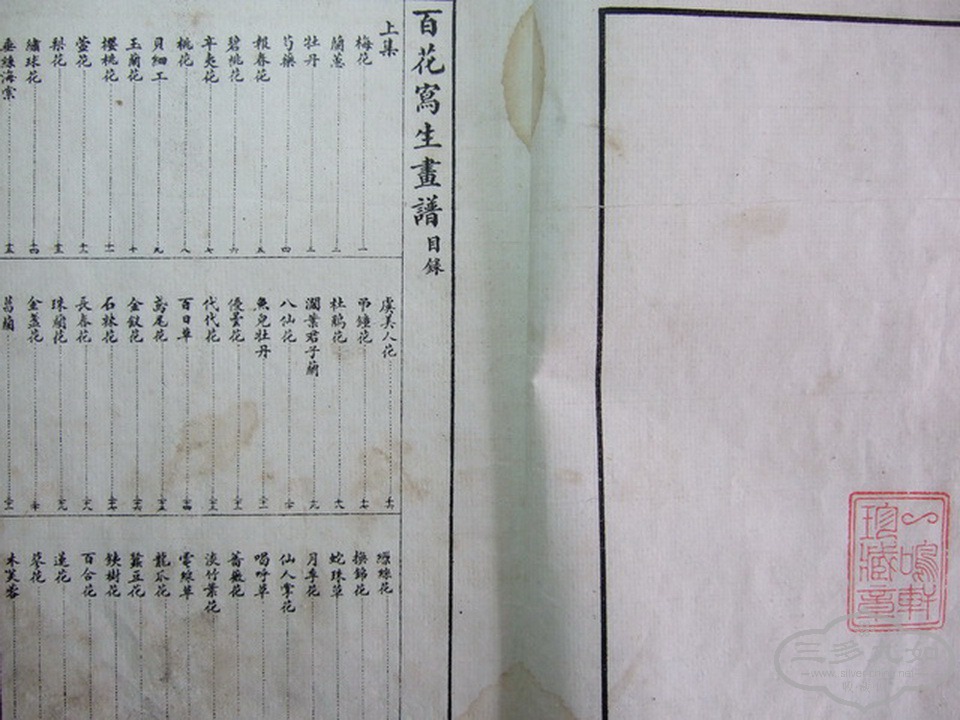 百花寫生畫譜目錄
上集
梅花 一
蘭蕙 二
牡丹 三
芍藥 四
報春花 五
碧桃花 六
辛夷花 七
桃花 八
貝細工 九
玉蘭花 十
櫻桃花 十一
萱花 十二
梨花 十三
繡球花 十四
垂絲海棠 十五
虞美人花 十六
吊鐘花 十七
杜鵑花 十八
濶葉君子蘭 十九
八仙花 二十
魚兒牡丹
優曇花
代代花
百日草
鳶尾花
金釵花
石竦花
長春花
珠蘭花
金盞花
菖蘭
纓絲花
撫錦花
蛇珠草
月季花
仙人掌花
喝呼草
薔薇花
淡竹葉花
雪線草
龍瓜花
蠶豆花
鐵樹花
百合花
蓮花
葵花
木芙蓉
一鳴軒
珍藏章
三多九如
www.silvercoins.net